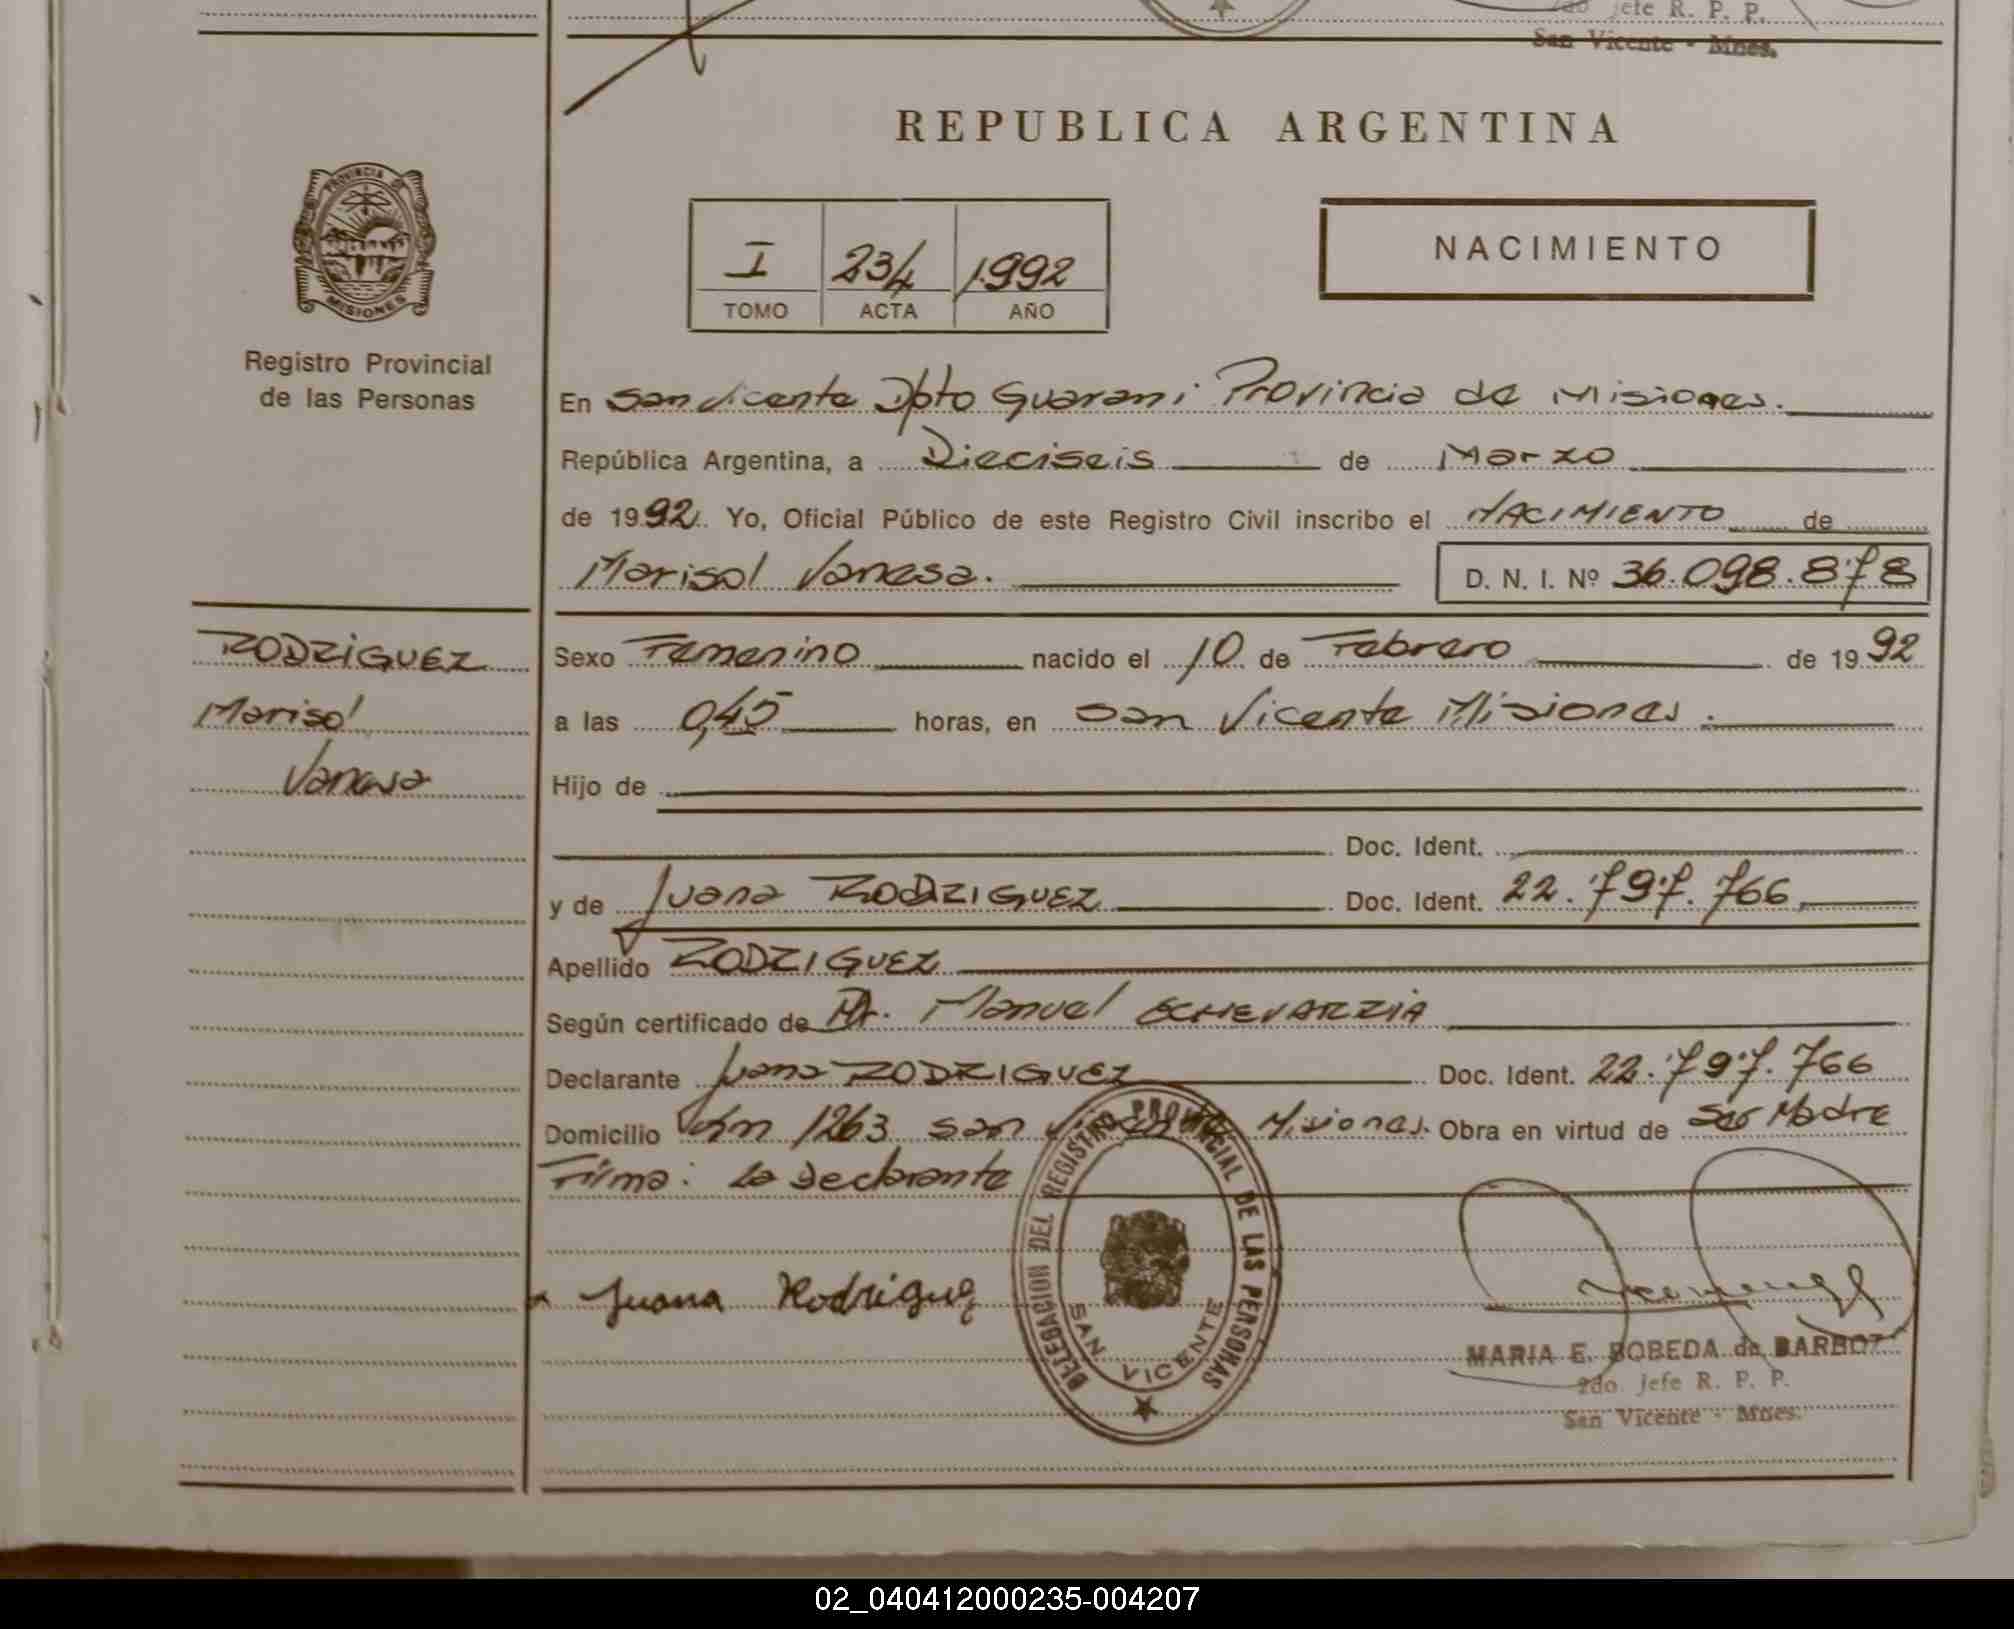 2do Jefe R. P. P.
San Vicente - Mnes.
REPUBLICA ARGENTINA
PROVINCIA DE
MISIONES
Registro Provincial
de las Personas
I 234 1992
TOMO ACTA AÑO
NACIMIENTO
En San Vicente Dpto Guarani Provincia de Misiones.
República Argentina, a Dieciseis de Marzo
de 1992. Yo, Oficial Público de este Registro Civil inscribo el NACIMIENTO de
Marisol Vanesa. D. N. I. Nº 36.098.878
RODRIGUEZ
Marisol
Vanesa
Sexo Femenino nacido el 10 de Febrero de 1992
a las 0,45 horas, en San Vicente Misiones.
Hijo de
Doc. Ident.
y de Juana RODRIGUEZ Doc. Ident. 22.797.766
Apellido RODRIGUEZ
Según certificado de Dr. Manuel ECHEVARRIA
Declarante Juana RODRIGUEZ Doc. Ident. 22.797.766
Domicilio Km 1263 San Vicente Misiones. Obra en virtud de Ser Madre
Firma: La Declarante
Juana Rodriguez
DELEGACION DEL REGISTRO PROVINCIAL DE LAS PERSONAS
SAN VICENTE
MARIA E. BOBEDA de BARBOZ
2do. Jefe R. P. P.
San Vicente - Mnes.
02_040412000235-004207